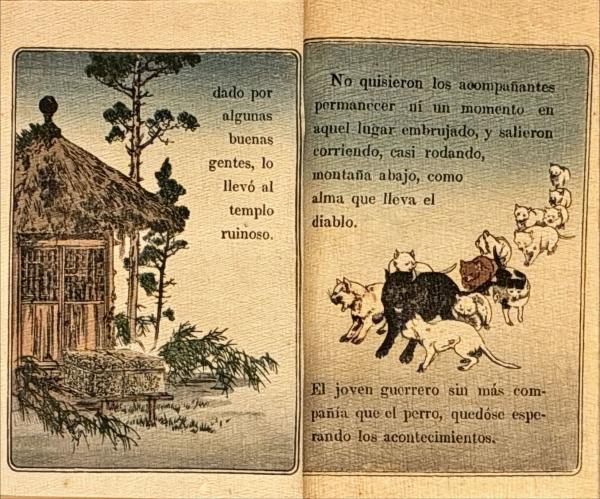 dado por
algunas
buenas
gentes, lo
llevó al
templo
ruinoso.
No quisieron los acompañantes
permanecer ni un momento en
aquel lugar embrujado, y salieron
corriendo, casi rodando,
montaña abajo, como
alma que lleva el
diablo.
El joven guerrero sin más com-
pañía que el perro, quedóse espe-
rando los acontecimientos.